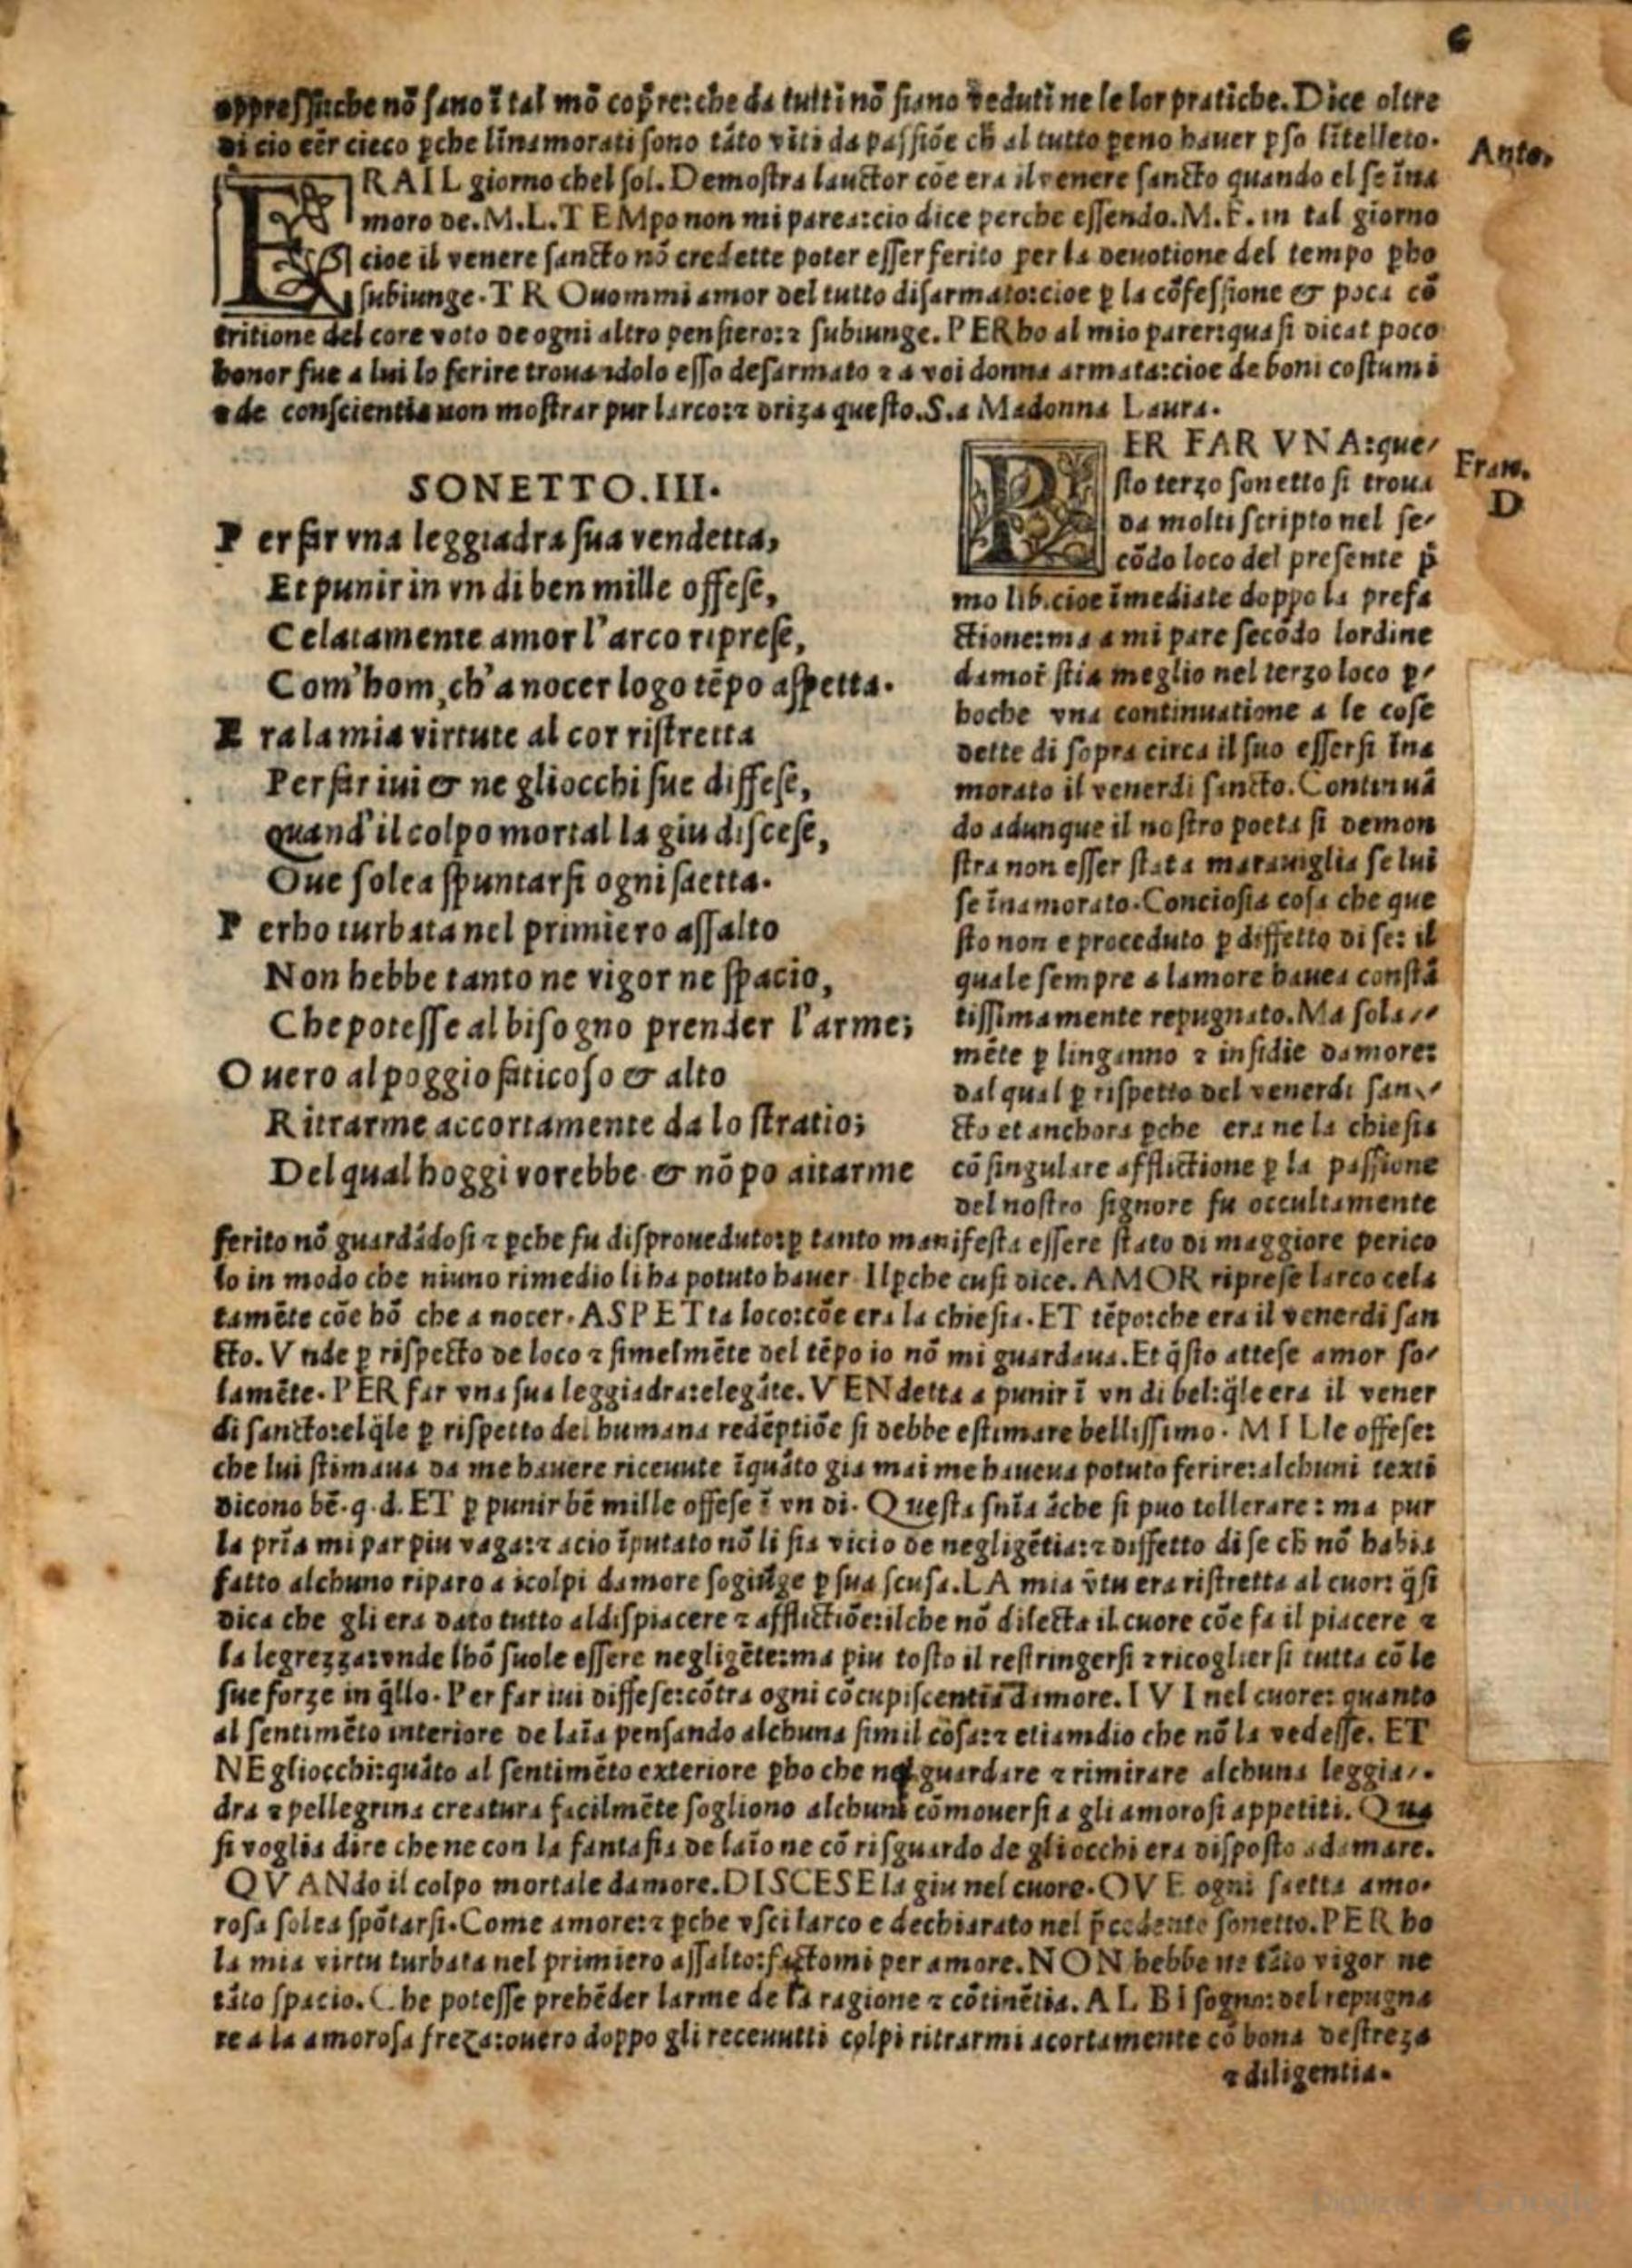 6
oppressi:che nō sano ī tal mō cop̄re:che da tutti nō siano veduti ne le lor pratiche. Dice oltre
di cio eēr cieco ꝑche līnamorati sono tāto vīti da passiōe ch̄ al tutto ꝑeno hauer ꝑso lītelleto.
Anto.
ERA IL giorno chel sol. Demostra lauctor cōe era il venere sancto quando el se īna
moro de. M. L. TEMpo non mi parea:cio dice perche essendo. M. F. in tal giorno
cioe il venere sancto nō credette poter esser ferito per la deuotione del tempo ꝑho
subiunge. TROuommi amor del tutto disarmato:cioe ꝑ la cōfessione & poca cō
tritione del core voto de ogni altro pensiero:⁊ subiunge. PERho al mio parer:quasi dicat poco
honor fue a lui lo ferire trouandolo esso desarmato ⁊ a voi donna armata:cioe de boni costumi
e de conscientia non mostrar pur larco:⁊ driza questo. S. a Madonna Laura.
SONETTO. III.
P er far vna leggiadra sua vendetta,
Et punir in vn di ben mille offese,
Celatamente amor l'arco riprese,
Com'hom, ch'a nocer logo tēpo aspetta.
E ra la mia virtute al cor ristretta
Per far iui & ne gliocchi sue diffese,
quand'il colpo mortal la giu discese,
Oue solea spuntarsi ogni saetta.
P erho turbata nel primiero assalto
Non hebbe tanto ne vigor ne spacio,
Che potesse al bisogno prender l'arme;
O uero al poggio faticoso & alto
Ritrarme accortamente da lo stratio;
Del qual hoggi vorebbe & nō po aitarme
Fran.
D
PER FAR VNA:que/
sto terzo sonetto si troua
da molti scripto nel se/
cōdo loco del presente p̄
mo lib. cioe īmediate doppo la prefa
ctione:ma a mi pare secōdo lordine
damor stia meglio nel terzo loco ꝑ/
hoche vna continuatione a le cose
dette di sopra circa il suo essersi īna
morato il venerdi sancto. Continuā
do adunque il nostro poeta si demon
stra non esser stata marauiglia se lui
se īnamorato. Conciosia cosa che que
sto non e proceduto ꝑ diffetto di se: il
quale sempre a lamore hauea constā
tissimamente repugnato. Ma sola//
mēte ꝑ linganno ⁊ insidie damore:
dal qual ꝑ rispetto del venerdi san//
cto et anchora ꝑche era ne la chiesia
cō singulare afflictione ꝑ la passione
del nostro signore fu occultamente
ferito nō guardādosi ⁊ ꝑche fu disproueduto:ꝑ tanto manifesta essere stato di maggiore perico
lo in modo che niuno rimedio li ha potuto hauer. Ilꝑche cusi dice. AMOR riprese larco cela
tamēte cōe hō che a nocer. ASPETta loco:cōe era la chiesia. ET tēpo:che era il venerdi san
cto. Vnde ꝑ rispecto de loco ⁊ simelmēte del tēpo io nō mi guardaua. Et q̄sto attese amor so/
lamēte. PER far vna sua leggiadra:elegāte. VENdetta a punir ī vn di bel:q̄le era il vener
di sancto:elq̄le ꝑ rispetto del humana redēptiōe si debbe estimare bellissimo. MILle offese:
che lui stimaua da me hauere riceuute īquāto gia mai me haueua potuto ferire:alchuni texti
dicono bē. q. d. ET ꝑ punir bē mille offese ī vn di. Questa snīa āche si puo tollerare: ma pur
la prīa mi par piu vaga:⁊ acio īputato nō li sia vicio de negligētia:⁊ diffetto di se ch̄ nō habia
fatto alchuno riparo a icolpi damore sogiūge ꝑ sua scusa. LA mia v̄tu era ristretta al cuor: q̄si
dica che gli era dato tutto al dispiacere ⁊ afflictiōe:ilche nō dilecta il cuore cōe fa il piacere ⁊
la legrezza:onde lhō suole essere negligēte:ma piu tosto il restringersi ⁊ ricogliersi tutta cō le
sue forze in q̄llo. Per far iui diffese:cōtra ogni cōcupiscentia damore. IVI nel cuore: quanto
al sentimēto interiore de laīa pensando alchuna simil cosa:⁊ etiamdio che nō la vedesse. ET
NE gliocchi:quāto al sentimēto exteriore ꝑho che nel guardare ⁊ rimirare alchuna leggia/.
dra ⁊ pellegrina creatura facilmēte sogliono alchuni cōmouersi a gli amorosi appetiti. Qua
si voglia dire che ne con la fantasia de laīo ne cō risguardo de gliocchi era disposto ad amare.
QVANdo il colpo mortale damore. DISCESE la giu nel cuore. OVE ogni saetta amo.
rosa solea spōtarsi. Come amore:⁊ ꝑche vsci larco e dechiarato nel p̄cedente sonetto. PERho
la mia virtu turbata nel primiero assalto:factomi per amore. NON hebbe ne tāto vigor ne
tāto spacio. Che potesse prehēder larme de la ragione ⁊ cōtinētia. AL BIsogno:del repugna
re a la amorosa freza:ouero doppo gli receuutti colpi ritrarmi acortamente cō bona destreza
⁊ diligentia.
Digitized by Google